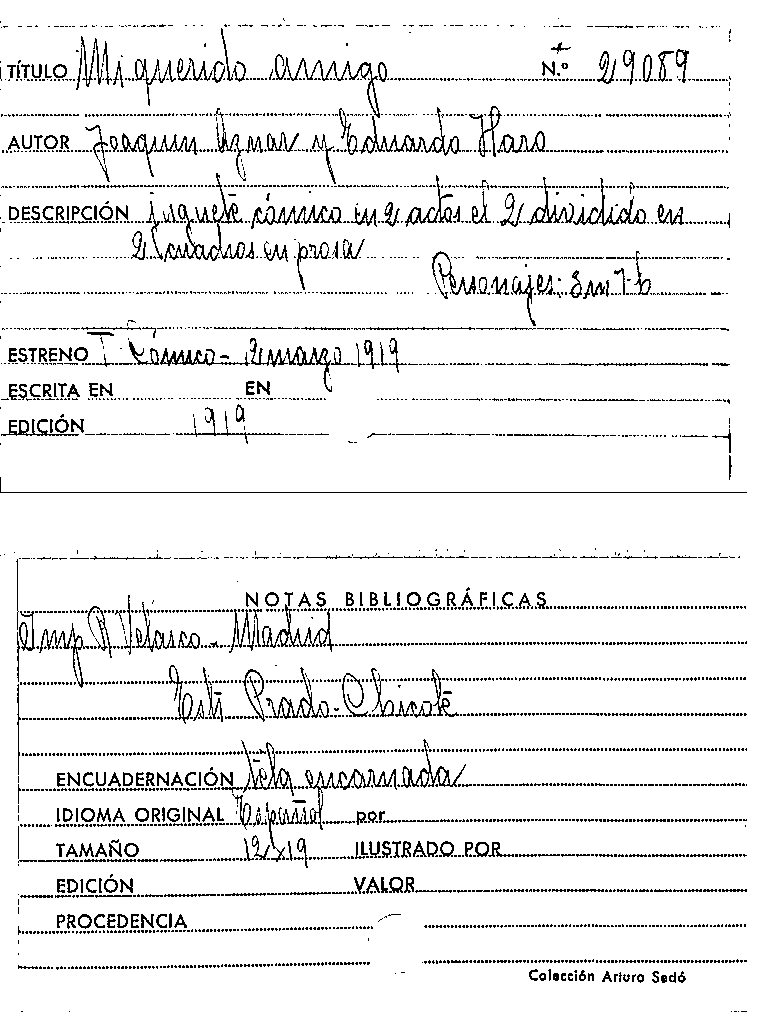 TÍTULO Mi querido amigo N.º 29089
AUTOR Joaquin Aznar y Eduardo Haro
DESCRIPCIÓN juguete cómico en 2 actos el 2 dividido en
2 cuadros en prosa
Personajes: 8m 7-h
ESTRENO T Cómico - 2 marzo 1919
ESCRITA EN EN
EDICIÓN 1919
NOTAS BIBLIOGRÁFICAS
Imp R Velasco - Madrid
Prado - Chicote
ENCUADERNACIÓN tela encarnada
IDIOMA ORIGINAL Español por
TAMAÑO 12x19 ILUSTRADO POR
EDICIÓN VALOR
PROCEDENCIA
Colección Arturo Sedó